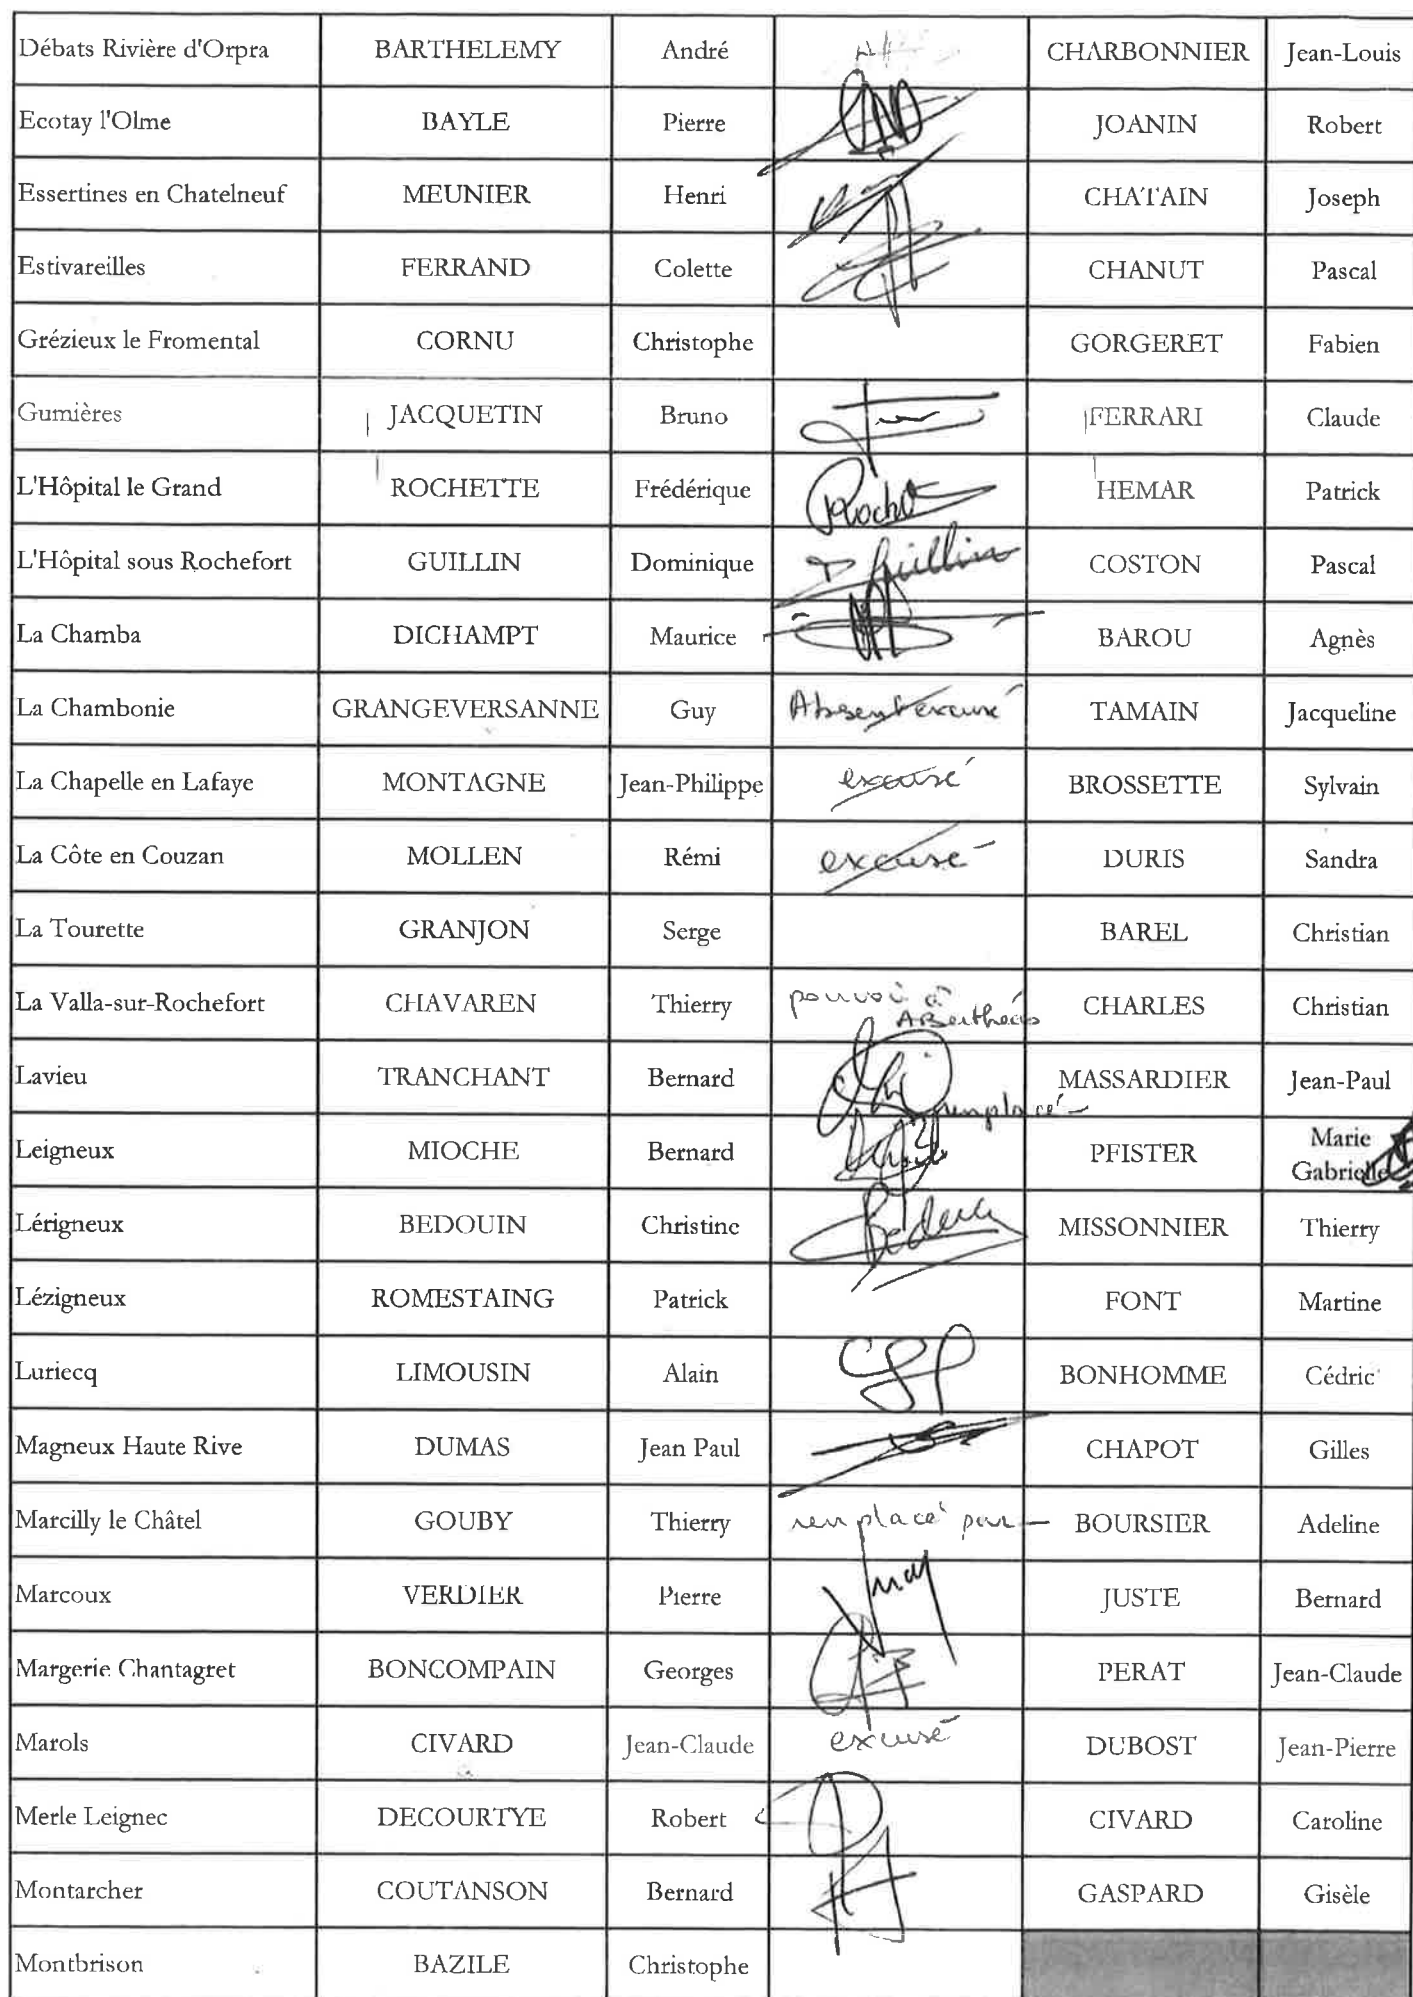 Débats Rivière d'Orpra BARTHELEMY André CHARBONNIER Jean-Louis
Ecotay l'Olme BAYLE Pierre JOANIN Robert
Essertines en Chatelneuf MEUNIER Henri CHATAIN Joseph
Estivareilles FERRAND Colette CHANUT Pascal
Grézieux le Fromental CORNU Christophe GORGERET Fabien
Gumières JACQUETIN Bruno FERRARI Claude
L'Hôpital le Grand ROCHETTE Frédérique HEMAR Patrick
L'Hôpital sous Rochefort GUILLIN Dominique Guillin COSTON Pascal
La Chamba DICHAMPT Maurice BAROU Agnès
La Chambonie GRANGEVERSANNE Guy Absent excusé TAMAIN Jacqueline
La Chapelle en Lafaye MONTAGNE Jean-Philippe excusé BROSSETTE Sylvain
La Côte en Couzan MOLLEN Rémi excusé DURIS Sandra
La Tourette GRANJON Serge BAREL Christian
La Valla-sur-Rochefort CHAVAREN Thierry pouvoir à CHARLES Christian
Lavieu TRANCHANT Bernard MASSARDIER Jean-Paul
remplacé
Leigneux MIOCHE Bernard PFISTER Marie
Gabrielle
Lérigneux BEDOUIN Christine MISSONNIER Thierry
Lézigneux ROMESTAING Patrick FONT Martine
Luriecq LIMOUSIN Alain BONHOMME Cédric
Magneux Haute Rive DUMAS Jean Paul CHAPOT Gilles
Marcilly le Châtel GOUBY Thierry remplacé par BOURSIER Adeline
Marcoux VERDIER Pierre JUSTE Bernard
Margerie Chantagret BONCOMPAIN Georges PERAT Jean-Claude
Marols CIVARD Jean-Claude excusé DUBOST Jean-Pierre
Merle Leignec DECOURTYE Robert CIVARD Caroline
Montarcher COUTANSON Bernard GASPARD Gisèle
Montbrison BAZILE Christophe